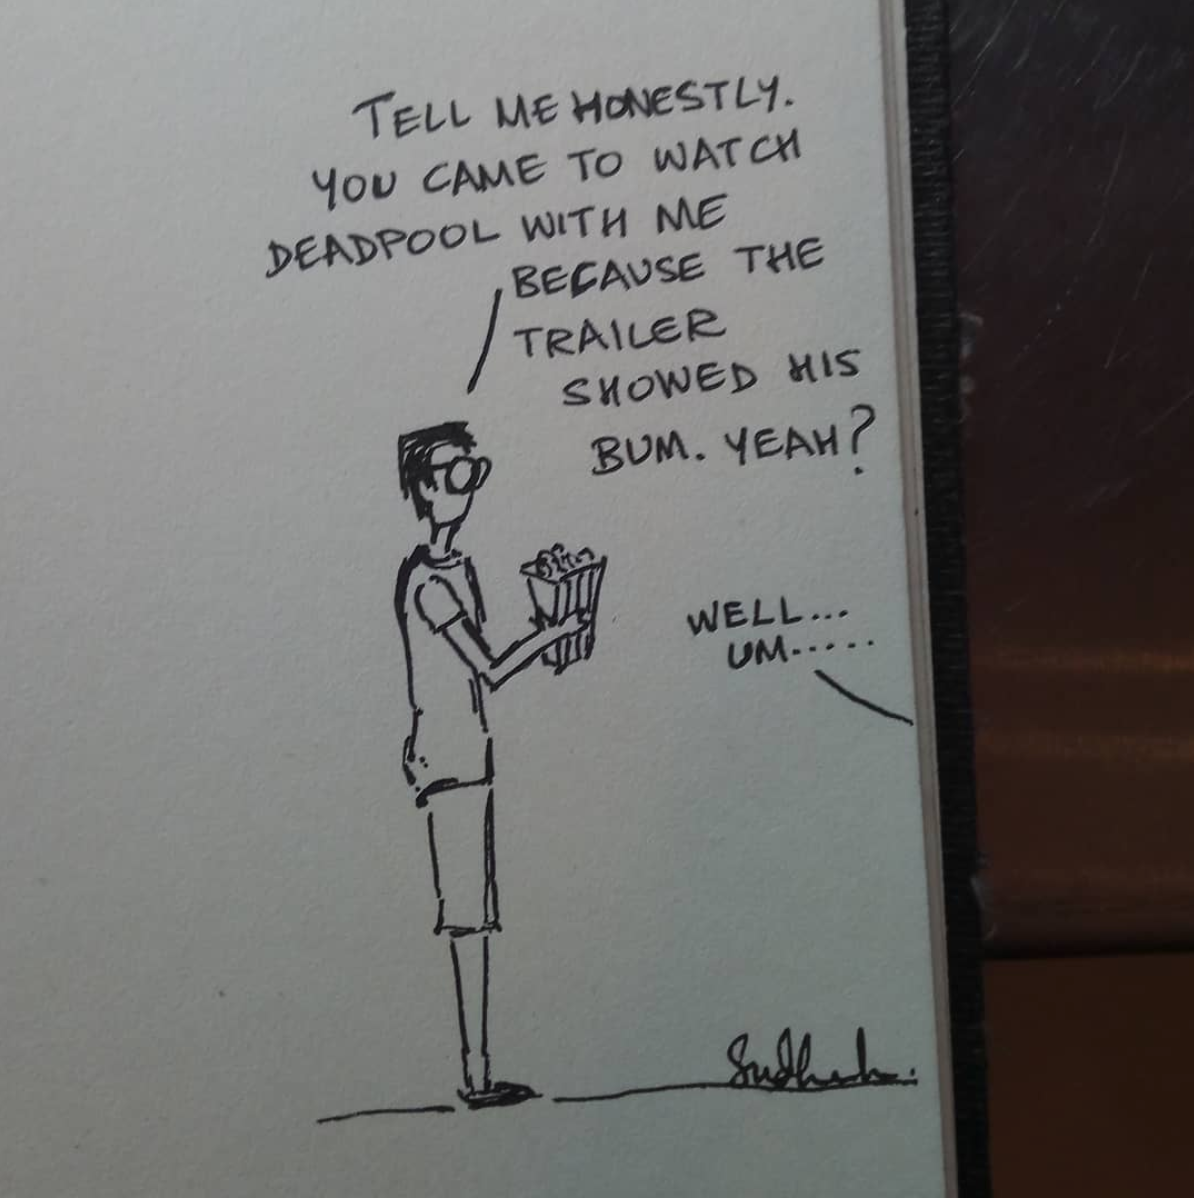 TELL ME HONESTLY.
YOU CAME TO WATCH
DEADPOOL WITH ME
BECAUSE THE
TRAILER
SHOWED HIS
BUM. YEAH?
WELL...
UM.....